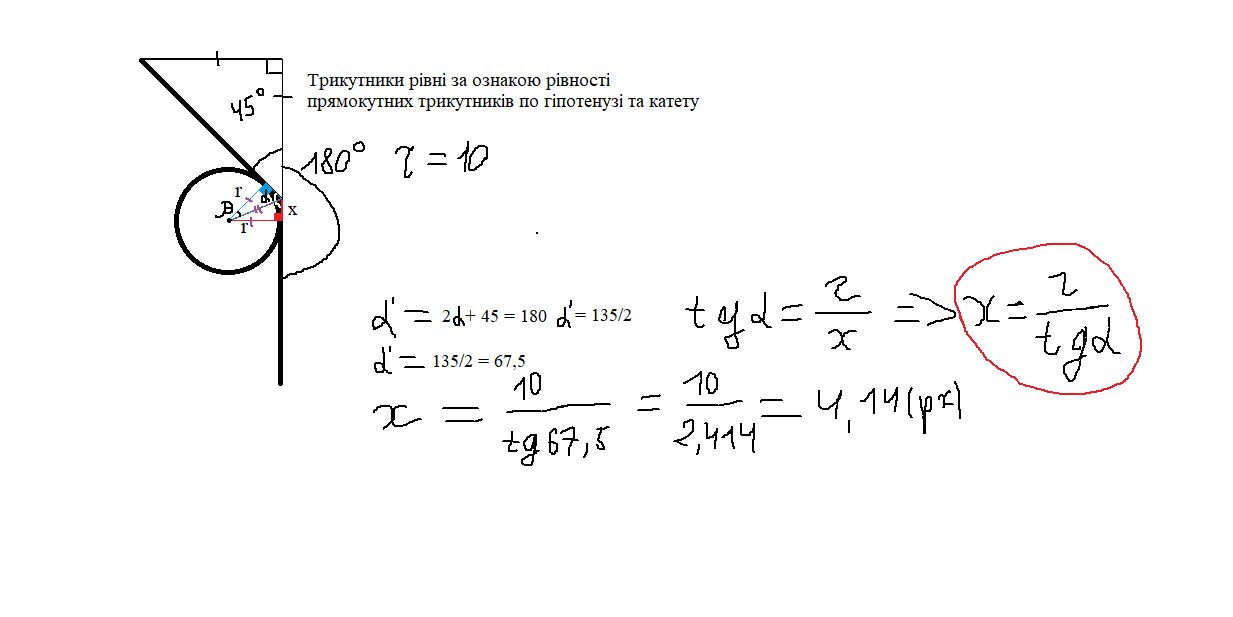 Трикутники рівні за ознакою рівності
прямокутних трикутників по гіпотенузі та катету
45°
180° r = 10
r
α
β
x
r
α = 2α + 45 = 180 α = 135/2
tg α = r / x => x = r / tg α
α = 135/2 = 67,5
x = 10 / tg 67,5 = 10 / 2,414 = 4,14 (px)